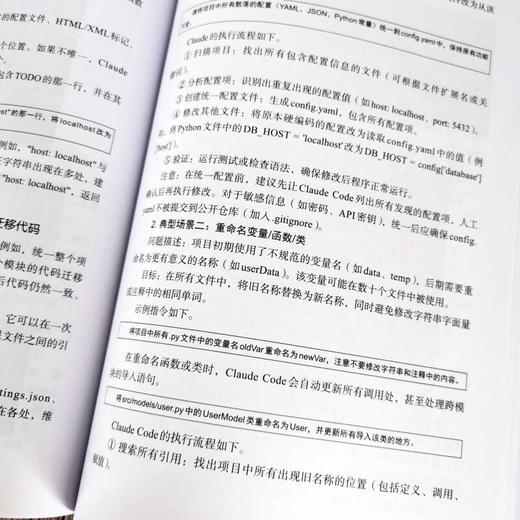 的配置文件、HTML/XML标记、
个位置。如果不唯一，Claude
包含TODO的那一行，并在其
host"的那一行，将localhost改为
例如，"host: localhost"与
字符串出现在多处，建
"host: localhost"，返回
迁移代码
例如，统一整个项
个模块的代码迁移
后代码仍然一致、
它可以在一次
文件之间的引
tings.json、
在各处，维
件改为从该
请将项目中所有散落的配置（YAML、JSON、Python常量）统一到config.yaml中，保持原有功能
不变。
Claude的执行流程如下。
① 扫描项目：找出所有包含配置信息的文件（可根据文件扩展名或关
键词）。
② 分析配置项：识别出重复出现的配置值（如host: localhost、port: 5432）。
③ 创建统一配置文件：生成config.yaml，包含所有配置项。
④ 修改其他文件：将原本硬编码的配置改为读取config.yaml中的值（例
如，将Python文件中的DB_HOST = 'localhost'改为DB_HOST = config['database']
['host']）。
⑤ 验证：运行测试或检查语法，确保修改后程序正常运行。
注意：在统一配置前，建议先让Claude Code列出所有发现的配置项，人工
确认后再执行修改。对于敏感信息（如密码、API密钥），统一后应确保config.
yaml不被提交到公开仓库（加入.gitignore）。
2. 典型场景二：重命名变量/函数/类
问题描述：项目初期使用了不规范的变量名（如data、temp），后期需要重
命名为更有意义的名称（如userData）。该变量可能在数十个文件中被使用。
目标：在所有文件中，将旧名称替换为新名称，同时避免修改字符串字面量
或注释中的相同单词。
示例指令如下。
将项目中所有.py文件中的变量名oldVar重命名为newVar，注意不要修改字符串和注释中的内容。
在重命名函数或类时，Claude Code会自动更新所有调用处，甚至处理跨模
块的导入语句。
将src/models/user.py中的UserModel类重命名为User，并更新所有导入该类的地方。
Claude Code的执行流程如下。
① 搜索所有引用：找出项目中所有出现旧名称的位置（包括定义、调用、
赋值）。